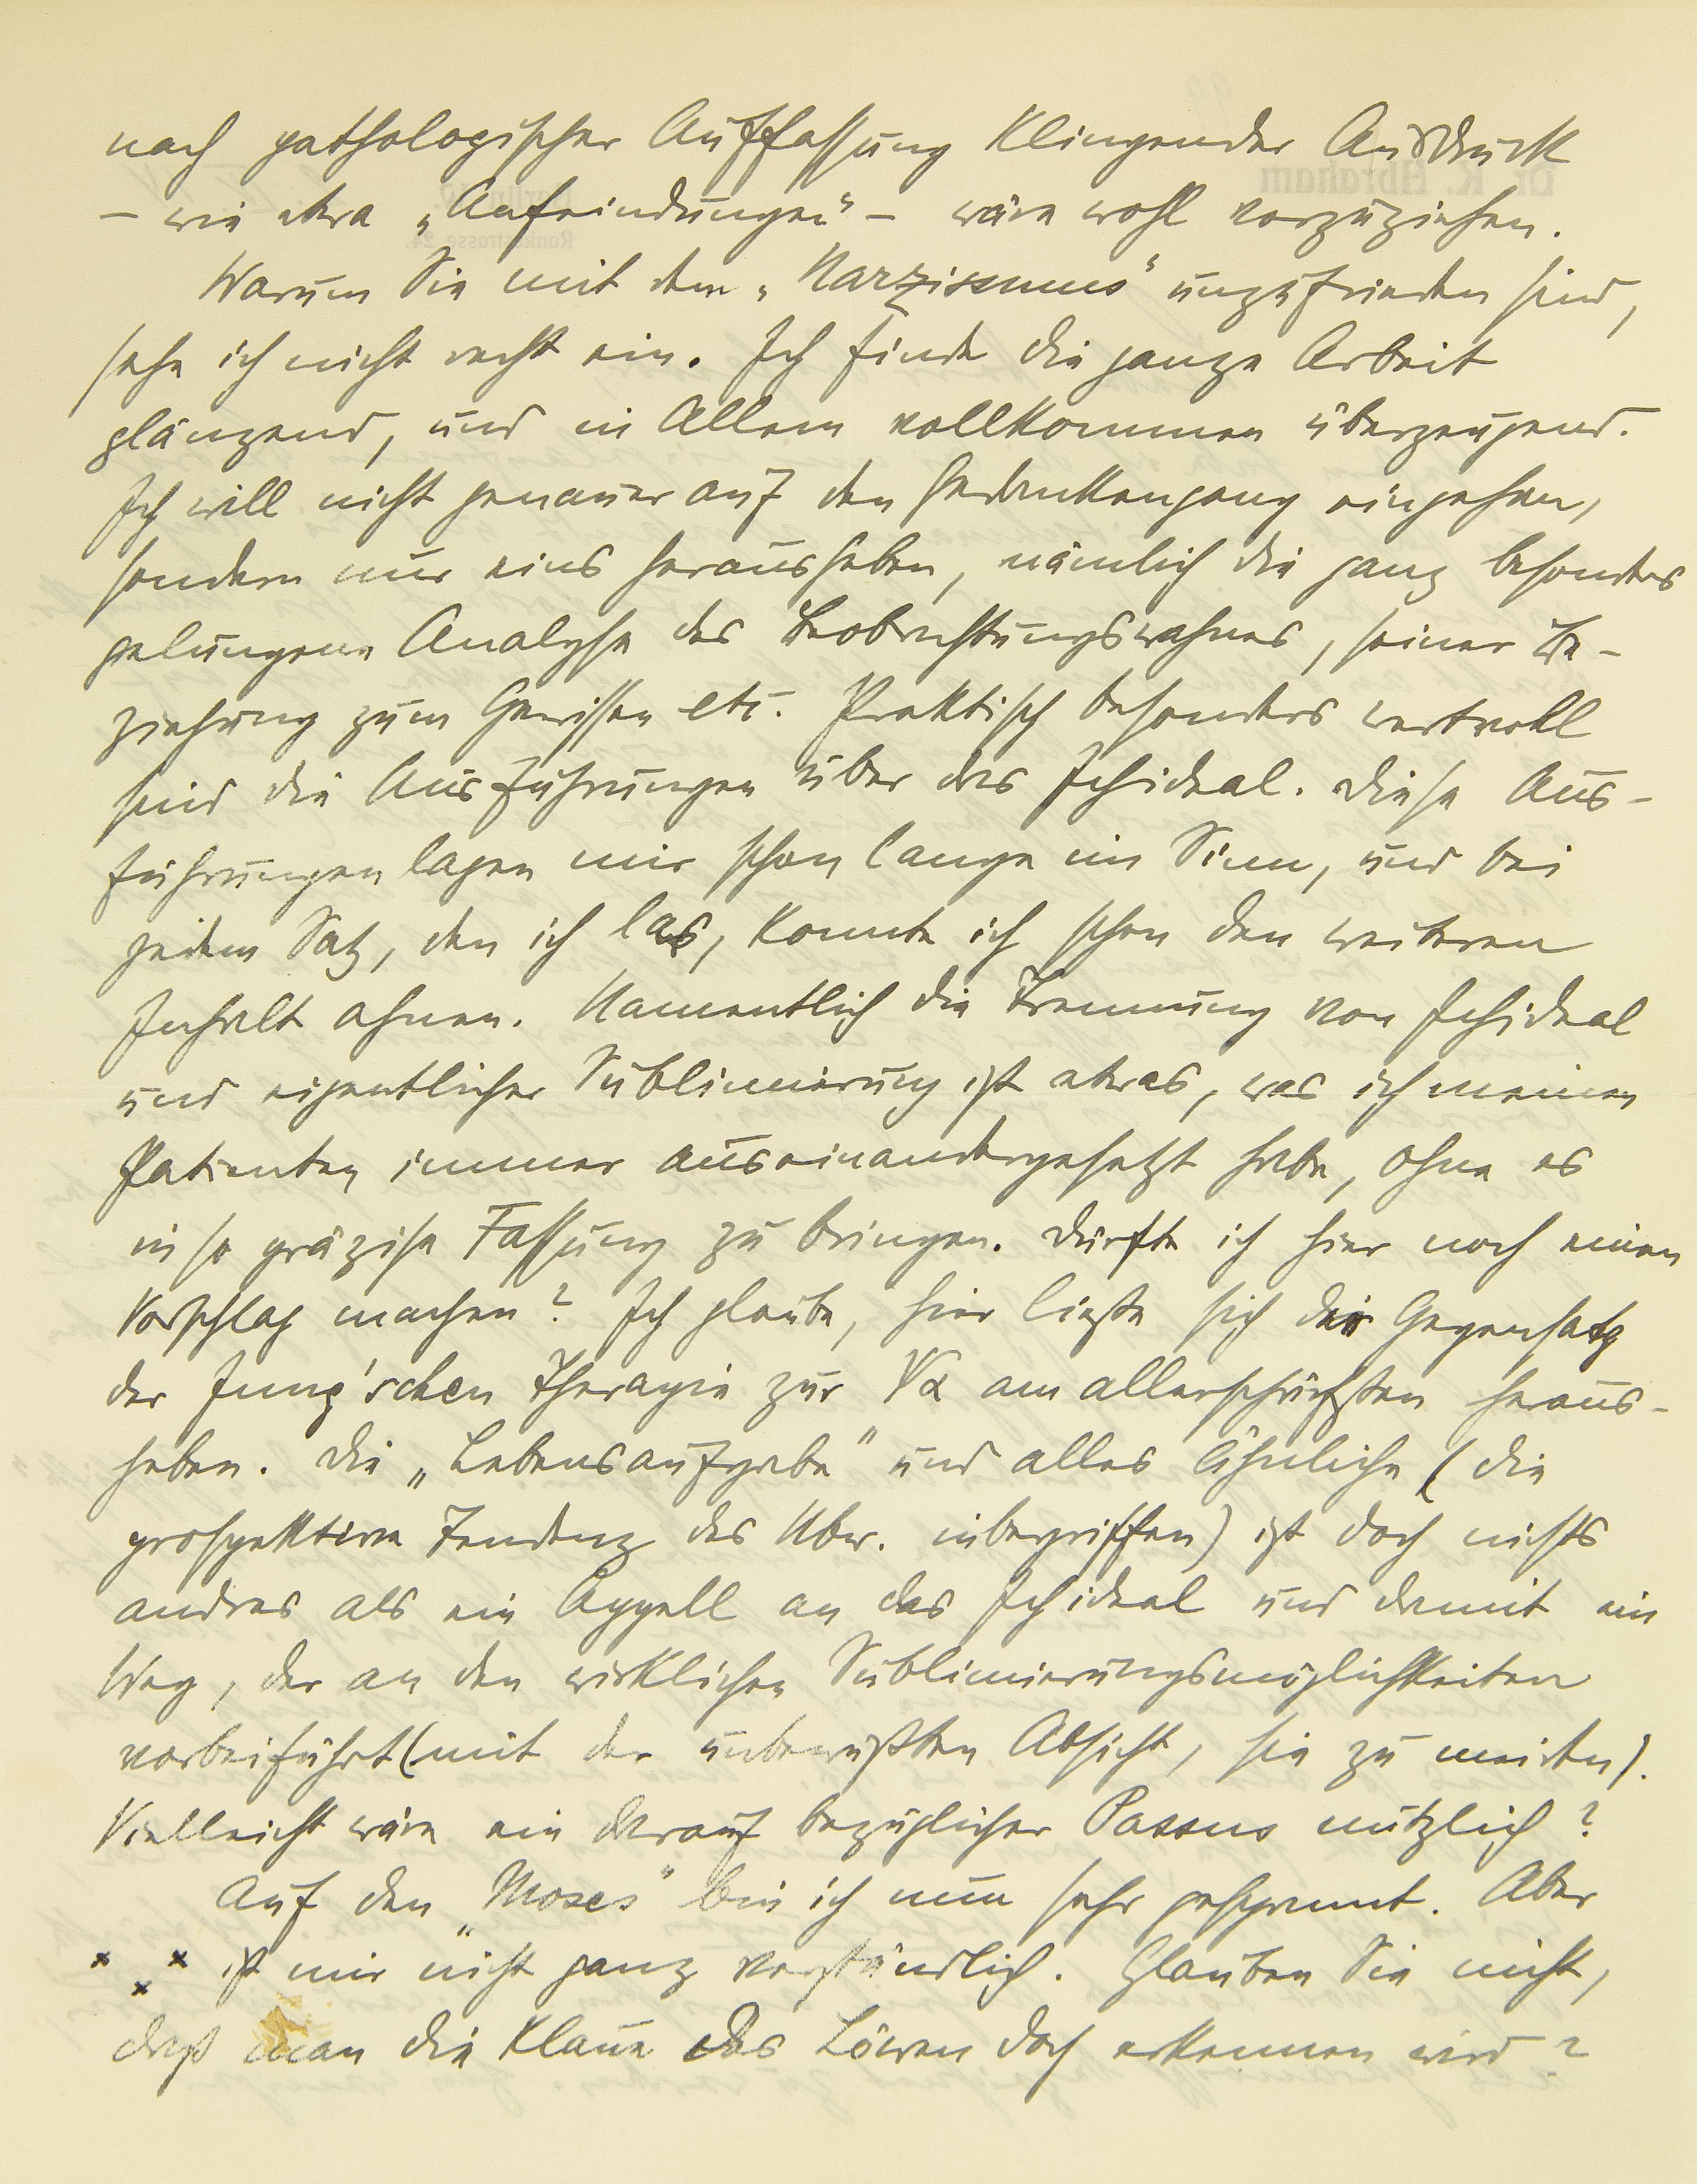 nach pathologischer Auffassung klingender Ausdruck
– wie etwa „Anfeindungen“ – wäre wohl vorzuziehen.
Warum Sie mit dem „Narzissmus“ unzufrieden sind,
sehe ich nicht recht ein. Ich finde die ganze Arbeit
glänzend, und in Allem vollkommen überzeugend.
Ich will nicht genauer auf den Gedankengang eingehen,
sondern nur eins herausheben, nämlich die ganz besonders
gelungene Analyse des Beobachtungswahnes, seiner Be-
ziehung zum Gewissen etc. Praktisch besonders wertvoll
sind die Ausführungen über das Ichideal. Diese Aus-
führungen lagen mir schon lange im Sinn, und bei
jedem Satz, den ich las, konnte ich schon den weiteren
Inhalt ahnen. Namentlich die Trennung von Ichideal
und eigentlicher Sublimierung ist etwas, was ich meinen
Patienten immer auseinandergesetzt habe, ohne es
in so präzise Fassung zu bringen. Dürfte ich hier noch einen
Vorschlag machen? Ich glaube, hier ließe sich der Gegensatz
der Jung'schen Therapie zur ΨΑ am allerschärfsten heraus-
heben. Die „Lebensaufgabe“ und alles Ähnliche (die
prospektive Tendenz des Ubw. inbegriffen) ist doch nichts
andres als ein Appell an das Ichideal und damit ein
Weg, der an den wirklichen Sublimierungsmöglichkeiten
vorbeiführt (mit der unbewußten Absicht, sie zu meiden).
Vielleicht wäre ein darauf bezüglicher Passus nützlich?
Auf den „Moses“ bin ich nun sehr gespannt. Aber
x x x ist mir nicht ganz verständlich. Glauben Sie nicht,
daß man die Klaue des Löwen doch erkennen wird?